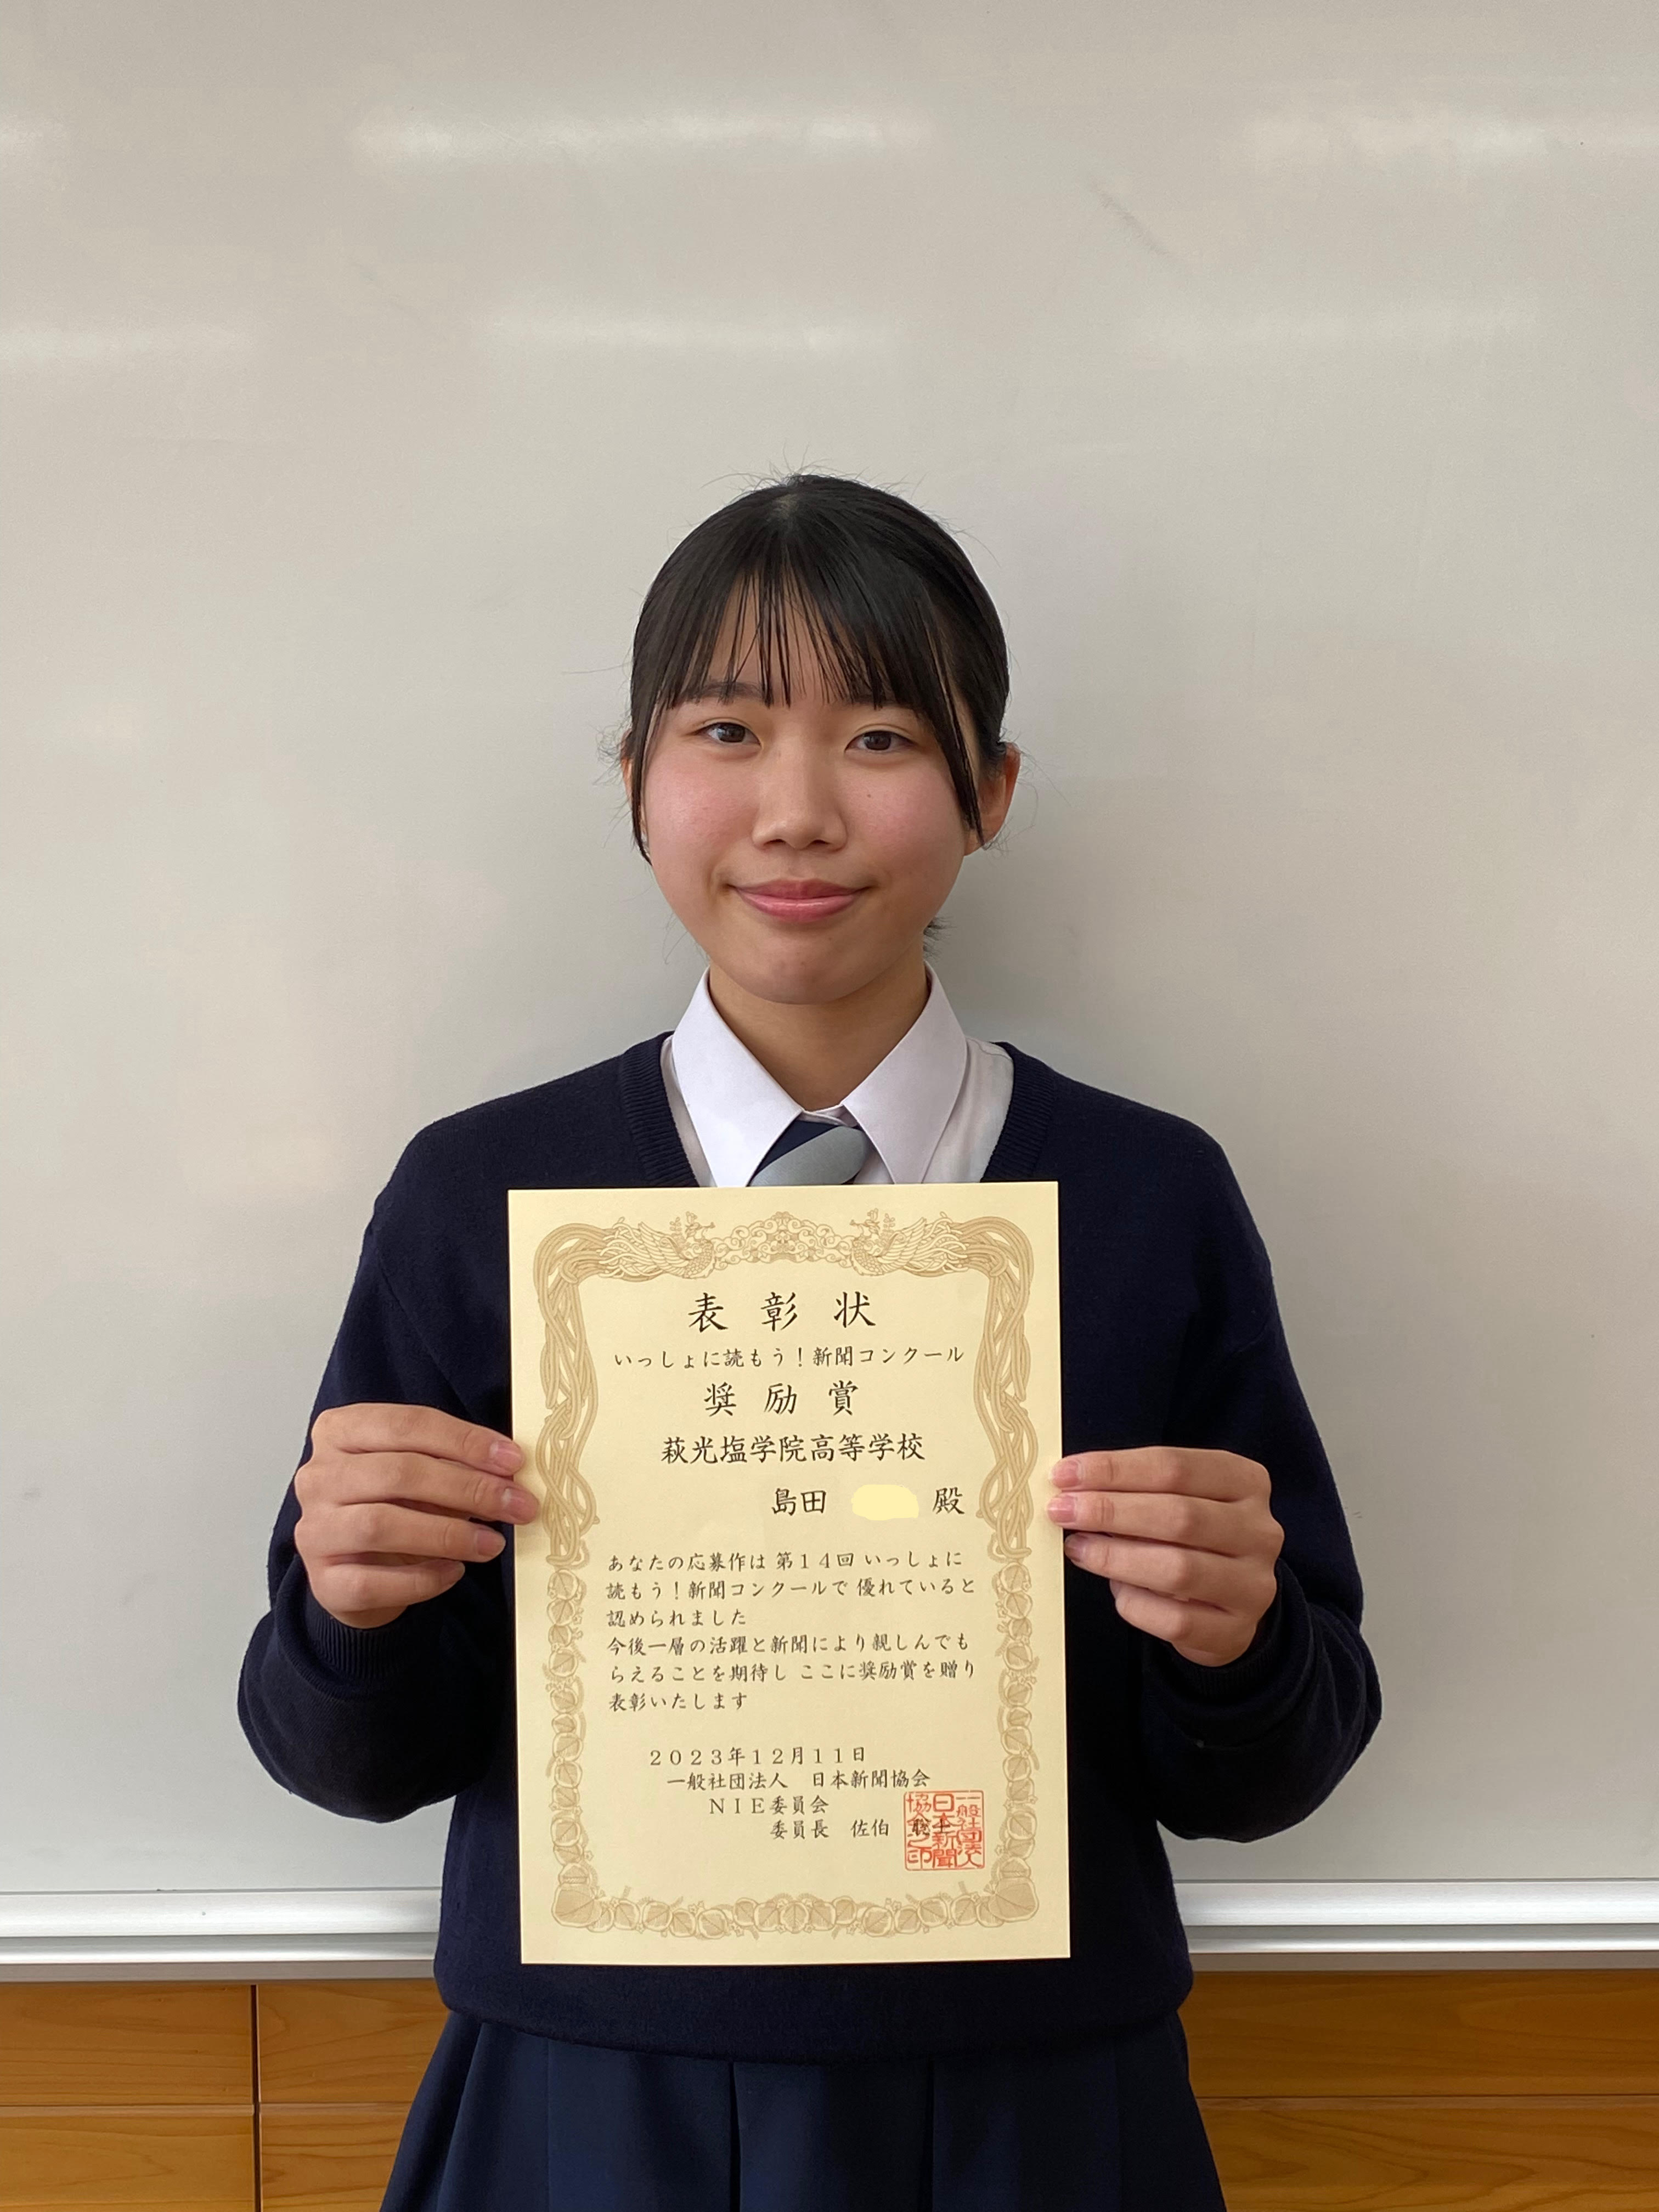 表彰状
いっしょに読もう！新聞コンクール
奨励賞
萩光塩学院高等学校
島田 殿
あなたの応募作は 第１４回 いっしょに
読もう！新聞コンクールで 優れていると
認められました
今後一層の活躍と新聞により親しんでも
らえることを期待し ここに奨励賞を贈り
表彰いたします
２０２３年１２月１１日
一般社団法人 日本新聞協会
ＮＩＥ委員会
委員長 佐伯 聡士
一般社団法人日本新聞協会之印